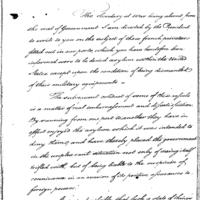 The Secretary at War being absent from
the seat of Government I am directed by the President
to write to you on the subject of those french privateers
fitted out in our ports, which you have heretofore been
informed were to be denied asylum within the United
States except upon the condition of being dismantled
of their military equipments.
The subsequent conduct of some of these vessels
is a matter of just embarrassment and dissatisfaction.
By running from one port to another they have in
effect enjoyed the asylum which it was intended to
deny them; and have thereby placed the government
in the unpleasant situation not only of seeing itself
trifled with, but of being liable to the suspicion of
connivance in an evasion of its positive assurances to
foreign powers.
that such a state of things